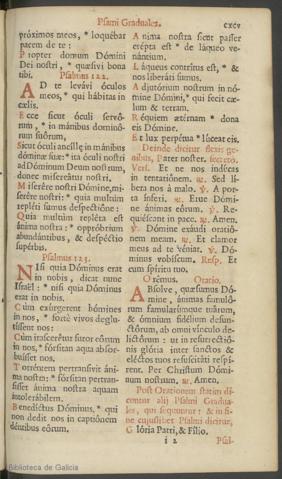 Psalmi Graduales.
cxcv
próximos meos, * loquébar
pacem de te :
Propter domum Dómini
Dei nostri, * quæsívi bona
tibi.
Psalmus 122.
AD te levávi óculos
meos, * qui hábitas in
cælis.
Ecce sicut óculi servó-
rum, * in mánibus dominó-
rum suórum,
Sicut óculi ancíllæ in mánibus
dóminæ suæ: * ita óculi nostri
ad Dóminum Deum nostrum,
donec misereátur nostri.
Miserére nostri Dómine, mi-
serére nostri: * quia multùm
repléti sumus despectióne :
Quia multùm repléta est
ánima nostra : * oppróbrium
abundántibus, & despéctio
supérbis.
Psalmus 123.
NIsi quia Dóminus erat
in nobis, dicat nunc
Israël : * nisi quia Dóminus
erat in nobis.
Cùm exsúrgerent hómines
in nos, * fortè vivos deglu-
tíssent nos:
Cùm irascerétur furor eórum
in nos, * fórsitan aqua absor-
buísset nos.
Torréntem pertransívit áni-
ma nostra: * fórsitan pertran-
sísset ánima nostra aquam
intolerábilem.
Benedíctus Dóminus, * qui
non dedit nos in captiónem
déntibus eórum.
Anima nostra sicut passer
erépta est * de láqueo ve-
nántium.
Láqueus contrítus est, * &
nos liberáti sumus.
Adjutórium nostrum in nó-
mine Dómini, * qui fecit cæ-
lum & terram.
Réquiem ætérnam * dona
eis Dómine.
Et lux perpétua * lúceat eis.
Deinde dicitur flexis ge-
nibus, Pater noster. secreto.
Vers. Et ne nos indúcas
in tentatiónem. ℟. Sed lí-
bera nos à malo. ℣. A por-
ta ínferi. ℟. Erue Dómi-
ne ánimas eórum. ℣. Re-
quiéscant in pace. ℟. Amen.
℣. Dómine exáudi oratió-
nem meam. ℟. Et clamor
meus ad te véniat. ℣. Dó-
minus vobíscum. Resp. Et
cum spíritu tuo.
Orémus. Oratio.
ABsólve, quǽsumus Dó-
mine, ánimas famuló-
rum famularúmque tuárum,
& ómnium fidélium defun-
ctórum, ab omni vínculo de-
lictórum : ut in resurrectió-
nis glória inter sanctos &
eléctos tuos resuscitáti respí-
rent. Per Christum Dómi-
num nostrum. ℟. Amen.
Post Orationem statim di-
cuntur alij Psalmi Gradua-
les, qui sequuntur : & in fi-
ne cujuslibet Psalmi dicitur,
Glória Patri, & Fílio.
i 2
Psal-
Biblioteca de Galicia